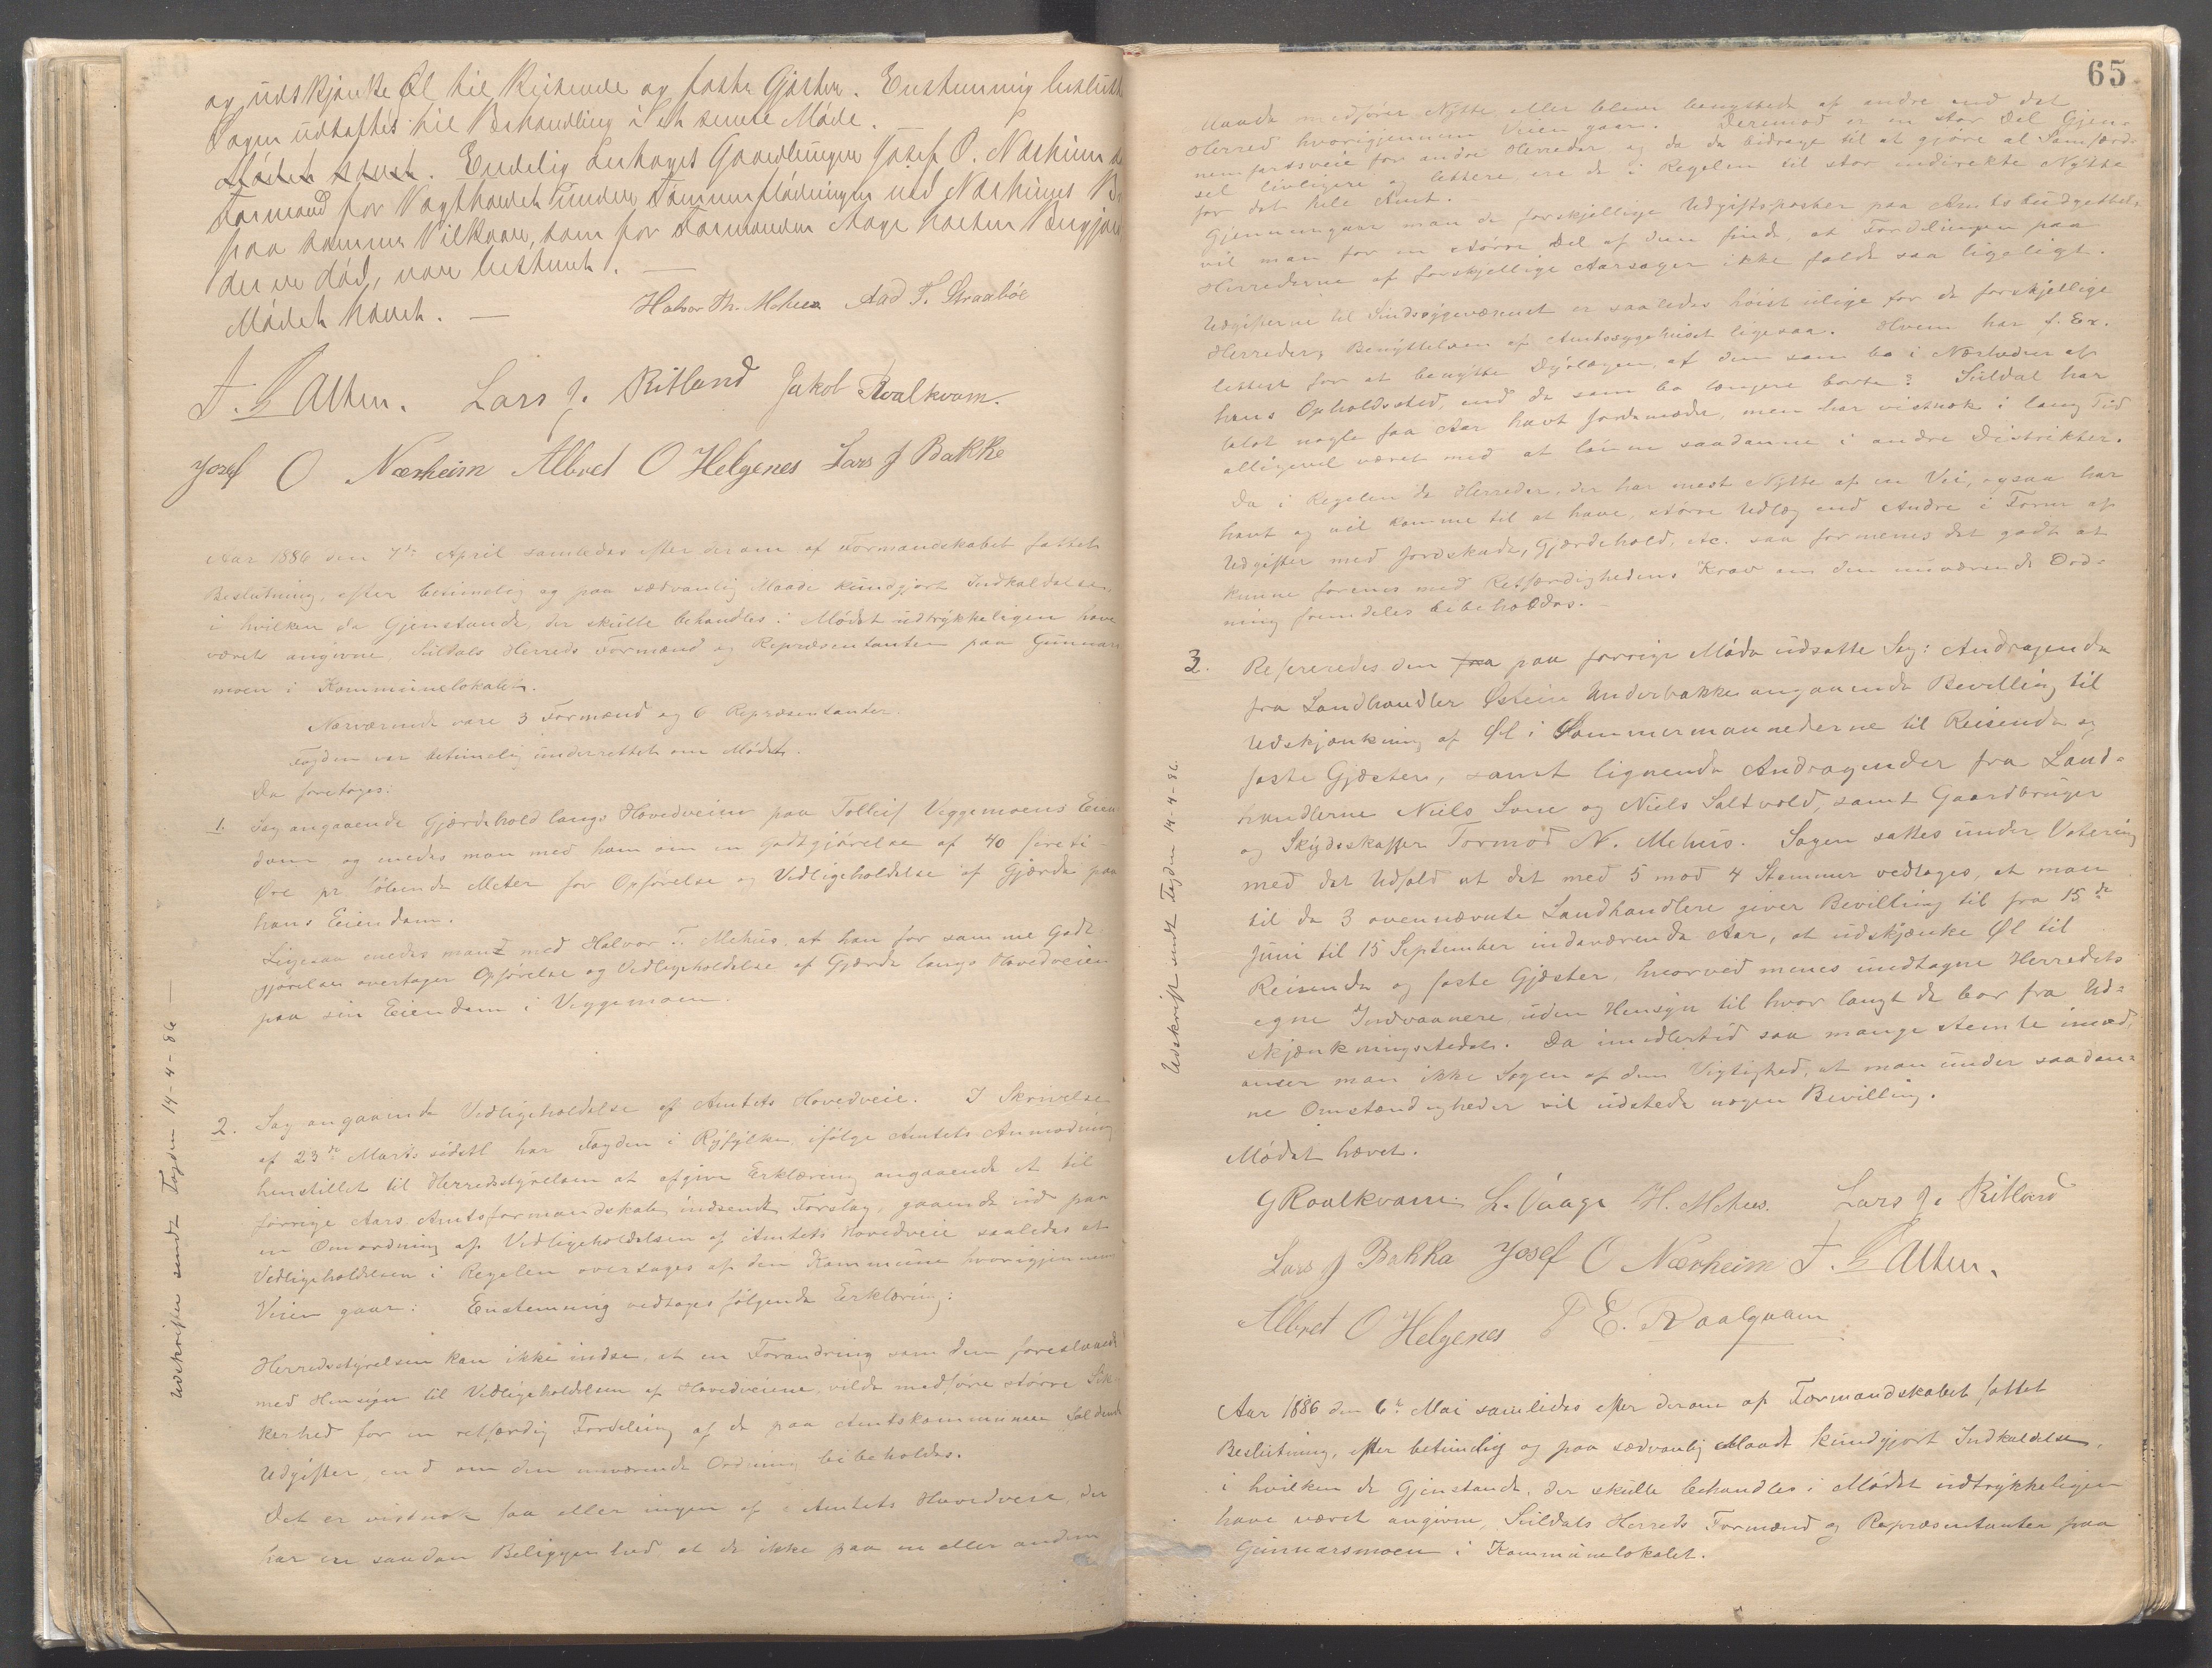 og udskjænke Øl til Reisende og faste Gjæster. Enstemmig besluttet
Sagen udsattes til Behandling i et senere Møde.
Mødet hævet. Endelig antoges Gaardbruger Josef O. Nærheim
Formand for Vagtholdet under Tømmerflødningen ved Nærheims
paa samme Vilkaar, som for Formanden
der er død, var bestemt. —
Mødet hævet. —
Halvor Th. Mehus Aad T. Straabøe
Lars J. Ritland Jakob Roalkvam.
Josef O Nærheim Albret O Helgenes Lars J Bakke
Aar 1886 den 7de April samledes efter derom af Formandskabet fattet
Beslutning, efter betimelig og paa sædvanlig Maade kundgjort Indkaldelse,
i hvilken de Gjenstande, der skulle behandles i Mødet udtrykkeligen have
været angivne, Suldals Herreds Formænd og Repræsentanter paa Gunnars
moen i Kommunelokalet.
Nærværende vare 3 Formænd og 6 Repræsentanter.
Fogden var betimelig underrettet om Mødet.
Da foretoges:
1. Sag angaaende Gjærdehold langs Hovedveien paa Tolleif Veggemoens Eien
dom og enedes man med ham om en Godtgjørelse af 40 fireti
Øre pr løbende Meter for Opførelse og Vedligeholdelse af Gjærde paa
hans Eiendom.
Ligesaa enedes man med Halvor T. Mehus, at han for samme Godt
gjørelse overtager Opførelse og Vedligeholdelse af Gjærde langs Hovedveien
paa sin Eiendom i Veggemoen.
2. Sag angaaende Vedligeholdelse af Amtets Hovedveie. I Skrivelse
af 23de Marts sidstl har Fogden i Ryfylke, ifølge Amtets Anmodning
henstillet til Herredsstyrelsen at afgive Erklæring angaaende et til
forrige Aars Amtsformandskab indsendt Forslag, gaaende ud paa
en Omordning af Vedligeholdelsen af Amtets Hovedveie saaledes at
Vedligeholdelsen i Regelen overtages af den Kommune hvorigjennem
Veien gaar: Enstemmig vedtoges følgende Erklæring:
Herredsstyrelsen kan ikke indse, at en Forandring som den foreslaaede
med Hensyn til Vedligeholdelsen af Hovedveiene, vilde medføre større Sik
kerhed for en retfærdig Fordeling af de paa Amtskommunen faldende
Udgifter, end om den nuværende Ordning bibeholdes.
Det er vistnok faa eller ingen af Amtets Hovedveie, der
har en saadan Beliggenhed at de ikke paa en eller anden
Udskrifter sendt Fogden 14-4-86 —
65
Maade medføre Nytte eller bliver benyttede af andre end det
Herred hvorigjennem Veien gaar. Derimod er en stor Del Gjen-
nemfartsveie for andre Herreder, og da de bidrage til at gjøre al Samfærd-
sel livligere og lettere, ere de i Regelen til stor indirekte Nytte
for det hele Amt.
Gjennemgaar man de forskjellige Udgiftsposter paa Amtsbudgettet,
vil man for en større Del af dem finde, at Fordelingen paa
Herrederne af forskjellige Aarsager ikke falde saa ligeligt.
Udgifterne til Sindssygevæsenet er saaledes høist ulige for de forskjellige
Herreder, Benyttelsen af Amtssygehuset ligesaa. Hvem har f. Ex.
lettest for at benytte Dyrlægen, af dem som bo i Nærheden af
hans Opholdssted, end de som bo længere borte? Suldal har
blot nogle faa Aar havt Jordemoder, men har vistnok i lang Tid
alligevel været med at lønne saadanne i andre Distrikter.
Da i Regelen de Herreder, der har mest Nytte af en Vei, ogsaa har
havt og vil komme til at have, større Udlæg end Andre i Form af
Udgifter med Jordskade, Gjærdehold, etc. saa formenes det godt at
kunne forenes med Retfærdighedens Krav om den nuværende Ord-
ning fremdeles bibeholdes.
3. Refereredes den fra paa forrige Møde udsatte Sag: Andragende
fra Landhandler Østein Underbakke angaaende Bevilling til
Udskjænkning af Øl i Sommermaanederne til Reisende og
faste Gjæster, samt lignende Andragender fra Land-
handlerne Niels Sone og Niels Saltvold, samt Gaardbruger
og Skydsskaffer Tormod N. Mehus. Sagen sattes under Votering
med det Udfald at det med 5 mod 4 Stemmer vedtoges, at man
til de 3 ovennævnte Landhandlere giver Bevilling til fra 15de
Juni til 15 September indeværende Aar, at udskjænke Øl til
Reisende og faste Gjæster, hvorved menes undtagne Herredets
egne Indvaanere, uden Hensyn til hvor langt de bor fra Ud-
skjænkningsstedet. Da imidlertid saa mange stemte imod,
anser man ikke Sagen af den Vigtighed, at man under saadan-
ne Omstændigheder vil udstede nogen Bevilling.
Mødet hævet.
G Roalkvam L. Vaage H. Mehus. Lars J. Ritland
Lars J Bakka Josef O Nærheim
Albret O Helgenes E. Roalquam
Aar 1886 den 6te Mai samledes efter derom af Formandskabet fattet
Beslutning, efter betimelig og paa sædvanlig Maade kundgjort Indkaldelse,
i hvilken de Gjenstande, der skulle behandles i Mødet udtrykkeligen
have været angivne, Suldals Herreds Formænd og Repræsentanter paa
Gunnarsmoen i Kommunelokalet.
Udskrift sendt Fogden 14-4-86.